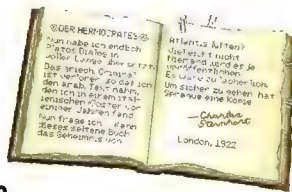 DER HERMOCRATES
Nun habe ich endlich
Platos Dialog in
voller Länge übersetzt.
Das griech. Original
ist verloren, so daß ich
den arab. Text nahm,
den ich in einem ital-
ienischen Kloster vor
einiger Jahren fand
Nun frage ich: Kann
dieses seltene Buch
das Geheimnis von
Atlantis lüften?
Vielleicht nicht
Niemand wird es je
veröffentlichen.
Es wäre zu lächerlich
Um sicher zu gehen hat
Sprague eine Kopie
Charles
Sternhart
London, 1922